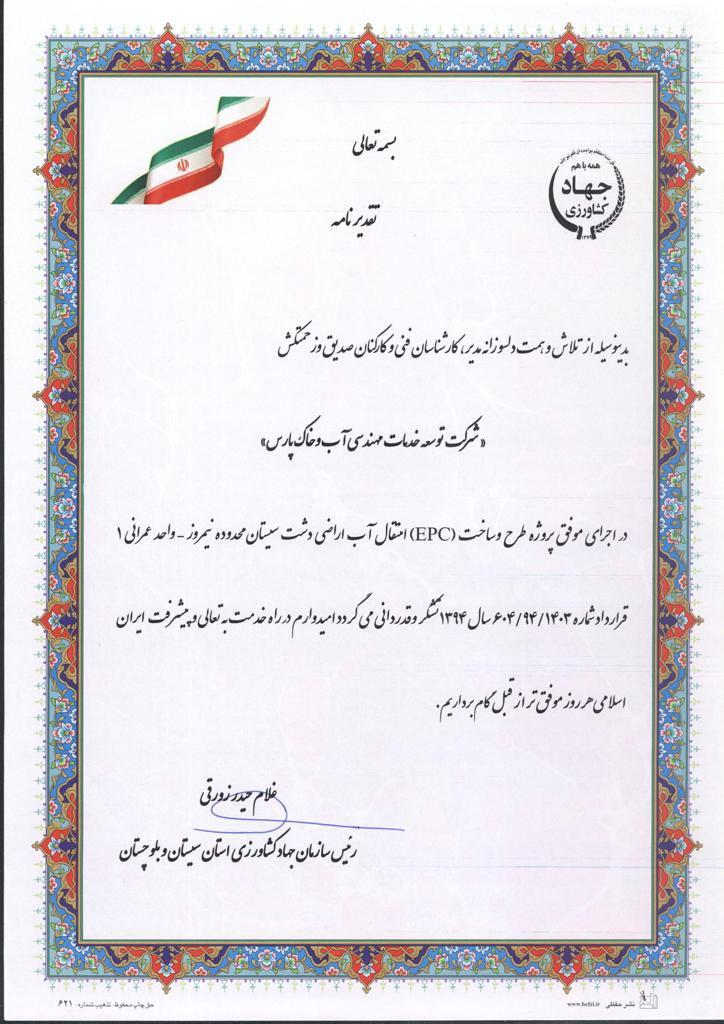 بسمه تعالی
همه با هم
جهاد
کشاورزی
۱۳۷۹
تقدیر نامه
بدینوسیله از تلاش و همت دلسوزانه مدیر، کارشناسان فنی و کارکنان صدیق و زحمتکش
«شرکت توسعه خدمات مهندسی آب و خاک پارس»
در اجرای موفق پروژه طرح و ساخت (EPC) انتقال آب اراضی دشت سیستان محدوده نیمروز - واحد عمرانی ۱
قرارداد شماره ۶۰۴/۹۴/۱۴۰۳ سال ۱۳۹۴ تشکر و قدردانی می گردد امیدوارم در راه خدمت به تعالی و پیشرفت ایران
اسلامی هر روز موفق تر از قبل گام برداریم.
غلام حیدر زورقی
رئیس سازمان جهاد کشاورزی استان سیستان و بلوچستان
نشر حفظی www.hefzi.ir
حق چاپ محفوظ. تذهیب شماره: ۶۲۱